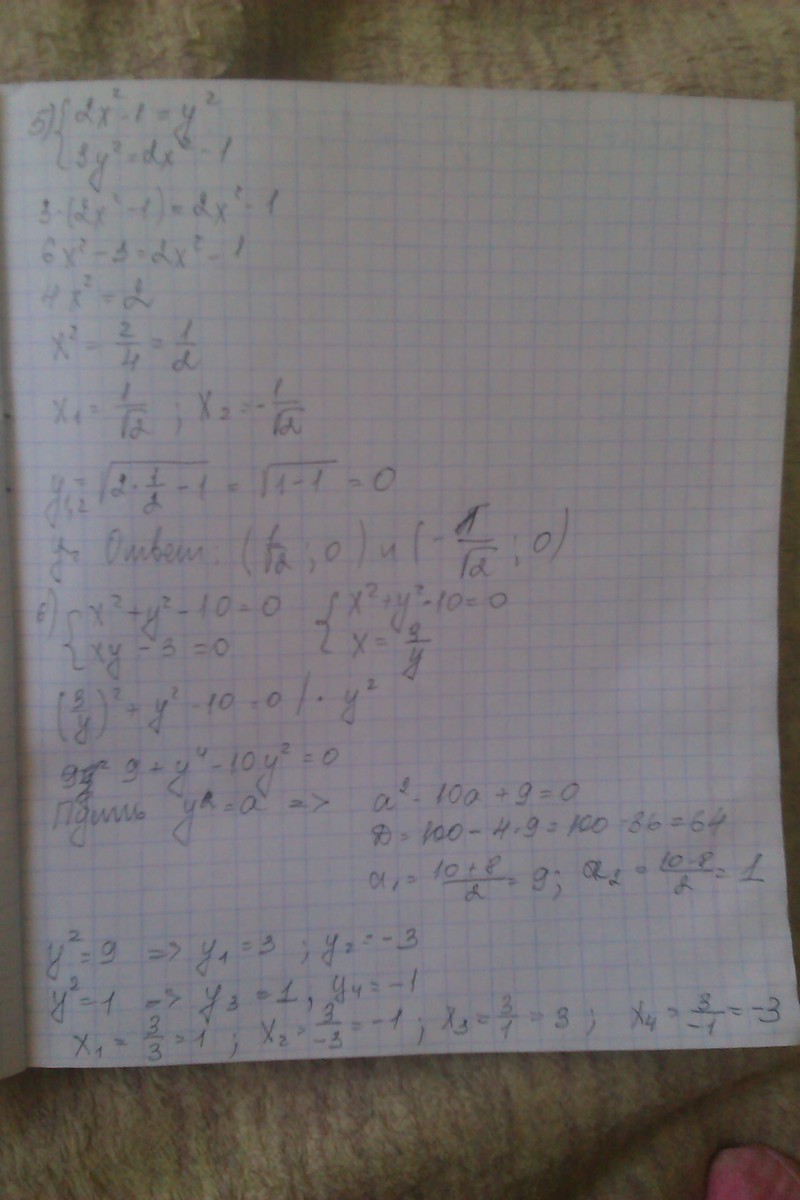 5) { 2x² - 1 = y²
{ 3y² = 2x² - 1
3·(2x² - 1) = 2x² - 1
6x² - 3 = 2x² - 1
4x² = 2
x² = 2/4 = 1/2
x₁ = 1/√2 ; x₂ = -1/√2
y₁,₂ = √(2·1/2 - 1) = √(1-1) = 0
Ответ: (1/√2 ; 0) и (-1/√2 ; 0)
6) { x² + y² - 10 = 0 { x² + y² - 10 = 0
{ xy - 3 = 0 { x = 3/y
(3/y)² + y² - 10 = 0 / · y²
9 + y⁴ - 10y² = 0
Пусть y² = a => a² - 10a + 9 = 0
D = 100 - 4·9 = 100 - 36 = 64
a₁ = (10+8)/2 = 9; a₂ = (10-8)/2 = 1
y² = 9 => y₁ = 3 ; y₂ = -3
y² = 1 => y₃ = 1 ; y₄ = -1
x₁ = 3/3 = 1 ; x₂ = 3/-3 = -1 ; x₃ = 3/1 = 3 ; x₄ = 3/-1 = -3